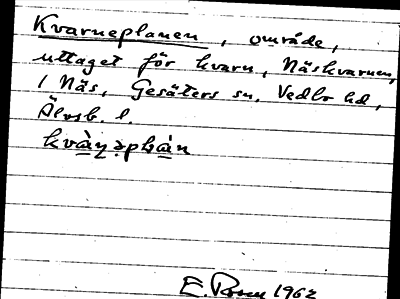 Kvarneplanen, område,
uttaget för kvarn, Näskvarnen,
1 Näs, Gesäters sn, Vedbo hd,
Älvsb. l.
E. Rosen 1962